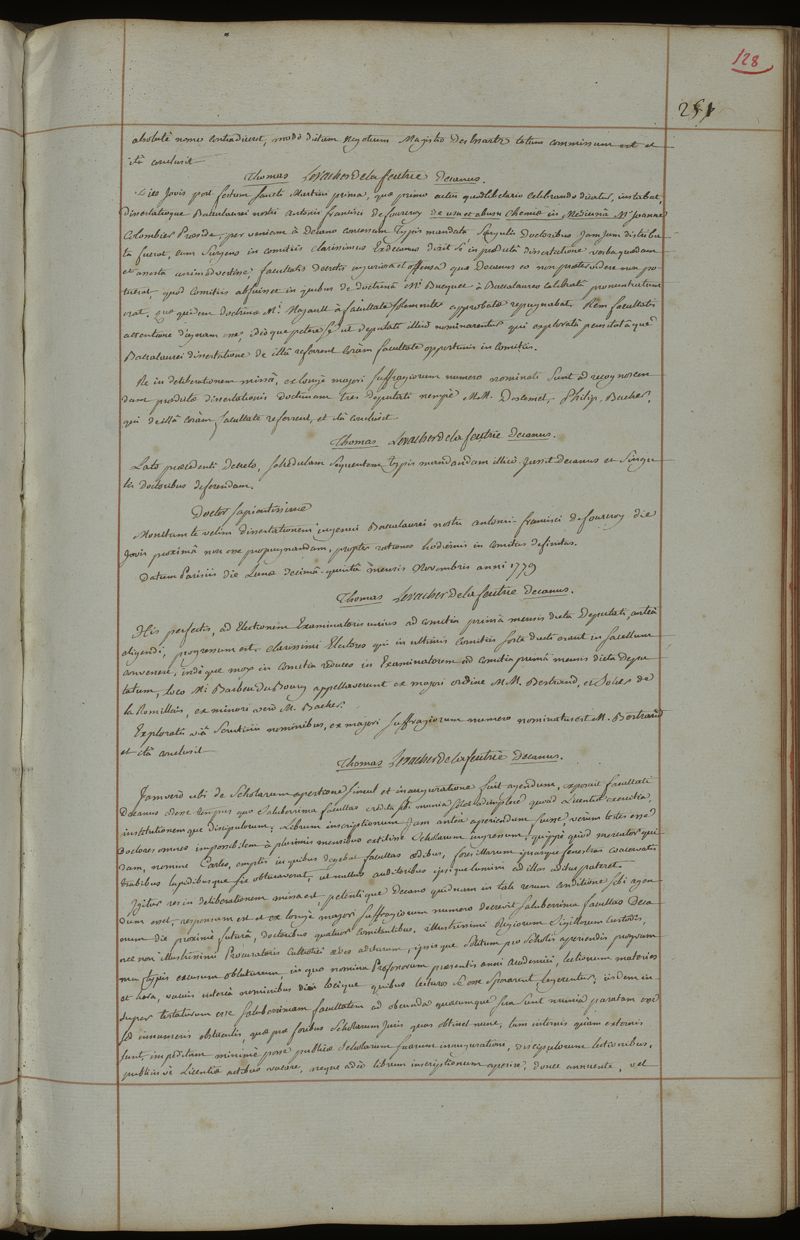 128
251
absolutè nemo contradiceret, modò dictum negotium Magistro Des Essartz totum commissum est et
ità conclusit
Thomas Levacher de la feutrie Decanus.
Dies Jovis post festum Sancti Martini prima, quae primo actui quodlibetario celebrando dicatur, instabat,
dissertatioque Baccalaurei nostri Antonii Francisci de fourcroy de usu et abusu Chemiae in Medicina Mo Joanne
Colombier Praeside, per veniam à Decano concessam typis mandata Singulis Doctoribus jam jam distribu-
ta fuerat, cum Surgens in comitiis clarissimus Exdecanus dixit Se in praedictâ dissertatione verba quaedam
et asserta animadvertisse, facultatis decretis injuriosa et offensa quae Decanus eo non praeter videre non po-
tuerat, quod Comitiis abfuisset in quibus de doctrinâ Mi Bucquet à Baccalaureo celebratâ pronunciatum
erat, quae quidem doctrina Mi Majault à facultate solemniter approbatae repugnabat. Rem facultatis
attentione dignam esse, ideoque petere se ut deputati illicò nominarentur qui exploratâ pensitatâ que
Baccalaurei dissertatione de illâ referrent Coràm facultate opportunis in Comitiis.
Re in deliberationem missâ, ex longè majori suffragiorum numero nominati Sunt ad recognoscen-
dam praedictae dissertationis doctrinam tres deputati nempè M.M. Philip, Bacher,
qui de illâ coràm facultate referrent, et ità conclusit
Thomas Levacher de la feutrie Decanus.
Lato praecedenti Decreto, schedulam sequentem typis mandandam illicò jussit Decanus et Singu-
lis doctoribus deferendam.
Doctor sapientissime
Monitum te velim dissertationem ingenui Baccalaurei nostri antonii francisci de fourcroy die
Jovis proximâ non esse propugnandam, propter rationes hodiernis in comitiis definitas.
Datum Parisiis die Lunae decimâ-quintâ mensis Novembris anni 1779
Thomas Levacher de la feutrie Decanus.
His perfectis, ad Electionem Examinatoris unius ad comitia prima mensis dicta Deputati, anteà
eligendi, progressum est. clarissimi Electores qui in ultimis Comitiis sorte ducti erant in sacellum
convenere, indè que mox in Comitia reduces in Examinatorem ad comitia prima mensis dicta Depu-
tatum, loco Mi Barbeu Du Bourg appellaverunt ex majori ordine M.M. Bertrand, et Solier de
la Romillais, ex minori verò M. Bacher.
Exploratis viâ Scrutinii nominibus, ex majori suffragiorum numero nominatus est M. Bertrand
et ità conclusit
Thomas Levacher de la feutrie Decanus.
Jamverò ubi de Scholarum apertione simul et inauguratione fuit agendum, exposuit facultati
Decanus adesse tempus quo Saluberrima facultas credita sibi munia solet adimplere quoad Licentiae exercitia,
institutionem que discipulorum; Librum inscriptionum jam anteà aperiendum fuisse, verùm testes esse
doctores omnes impossibilem à plurimis mensibus extitisse Scholarum ingressum, quippè quòd mercator qui-
dam, nomine Carles, emptis in quibus degebat facultas aedibus, fores illarum ipsasque fenestras coacervatis
trabibus lapidibusque sic obturaverat, ut nullus auditoribus ipsique lumini ad illas aditus pateret.
Igitur res in deliberationem missa est, petentique Decano quidnam in tali rerum conditione sibi agen-
dum esset, responsum est et ex longè majori suffragiorum numero decrevit Saluberrima facultas Deca-
num die proximè futurâ, doctoribus quatuor comitantibus, illustrissimi Regiorum Sigillorum custodis,
nec non illustrissimi Procuratoris Catholici aedes aditurum, ipsis que solitum pro Scholis aperiendis program-
ma typis excusum oblaturum, in quo nomina Professorum praesentis anni academici, lectionum materies
et hora, vacuis interìm nominibus diei locique quibus lecturos se esse sperarent, legerentur; iisdem in-
super testaturum esse saluberrimam facultatem ad obeunda quaecumque sua sunt munia paratam
sed innumeris obstaculis, quae prae foribus Scholarum juris quas obtinet nunc, tam internis quàm externis
sunt, impeditam minimè posse publicae Scholarum suarum inaugurationi, discipulorum lectionibus,
publicis ve Licentiae actibus vacare, neque adeò librum inscriptionum aperire, donec annuente, vel